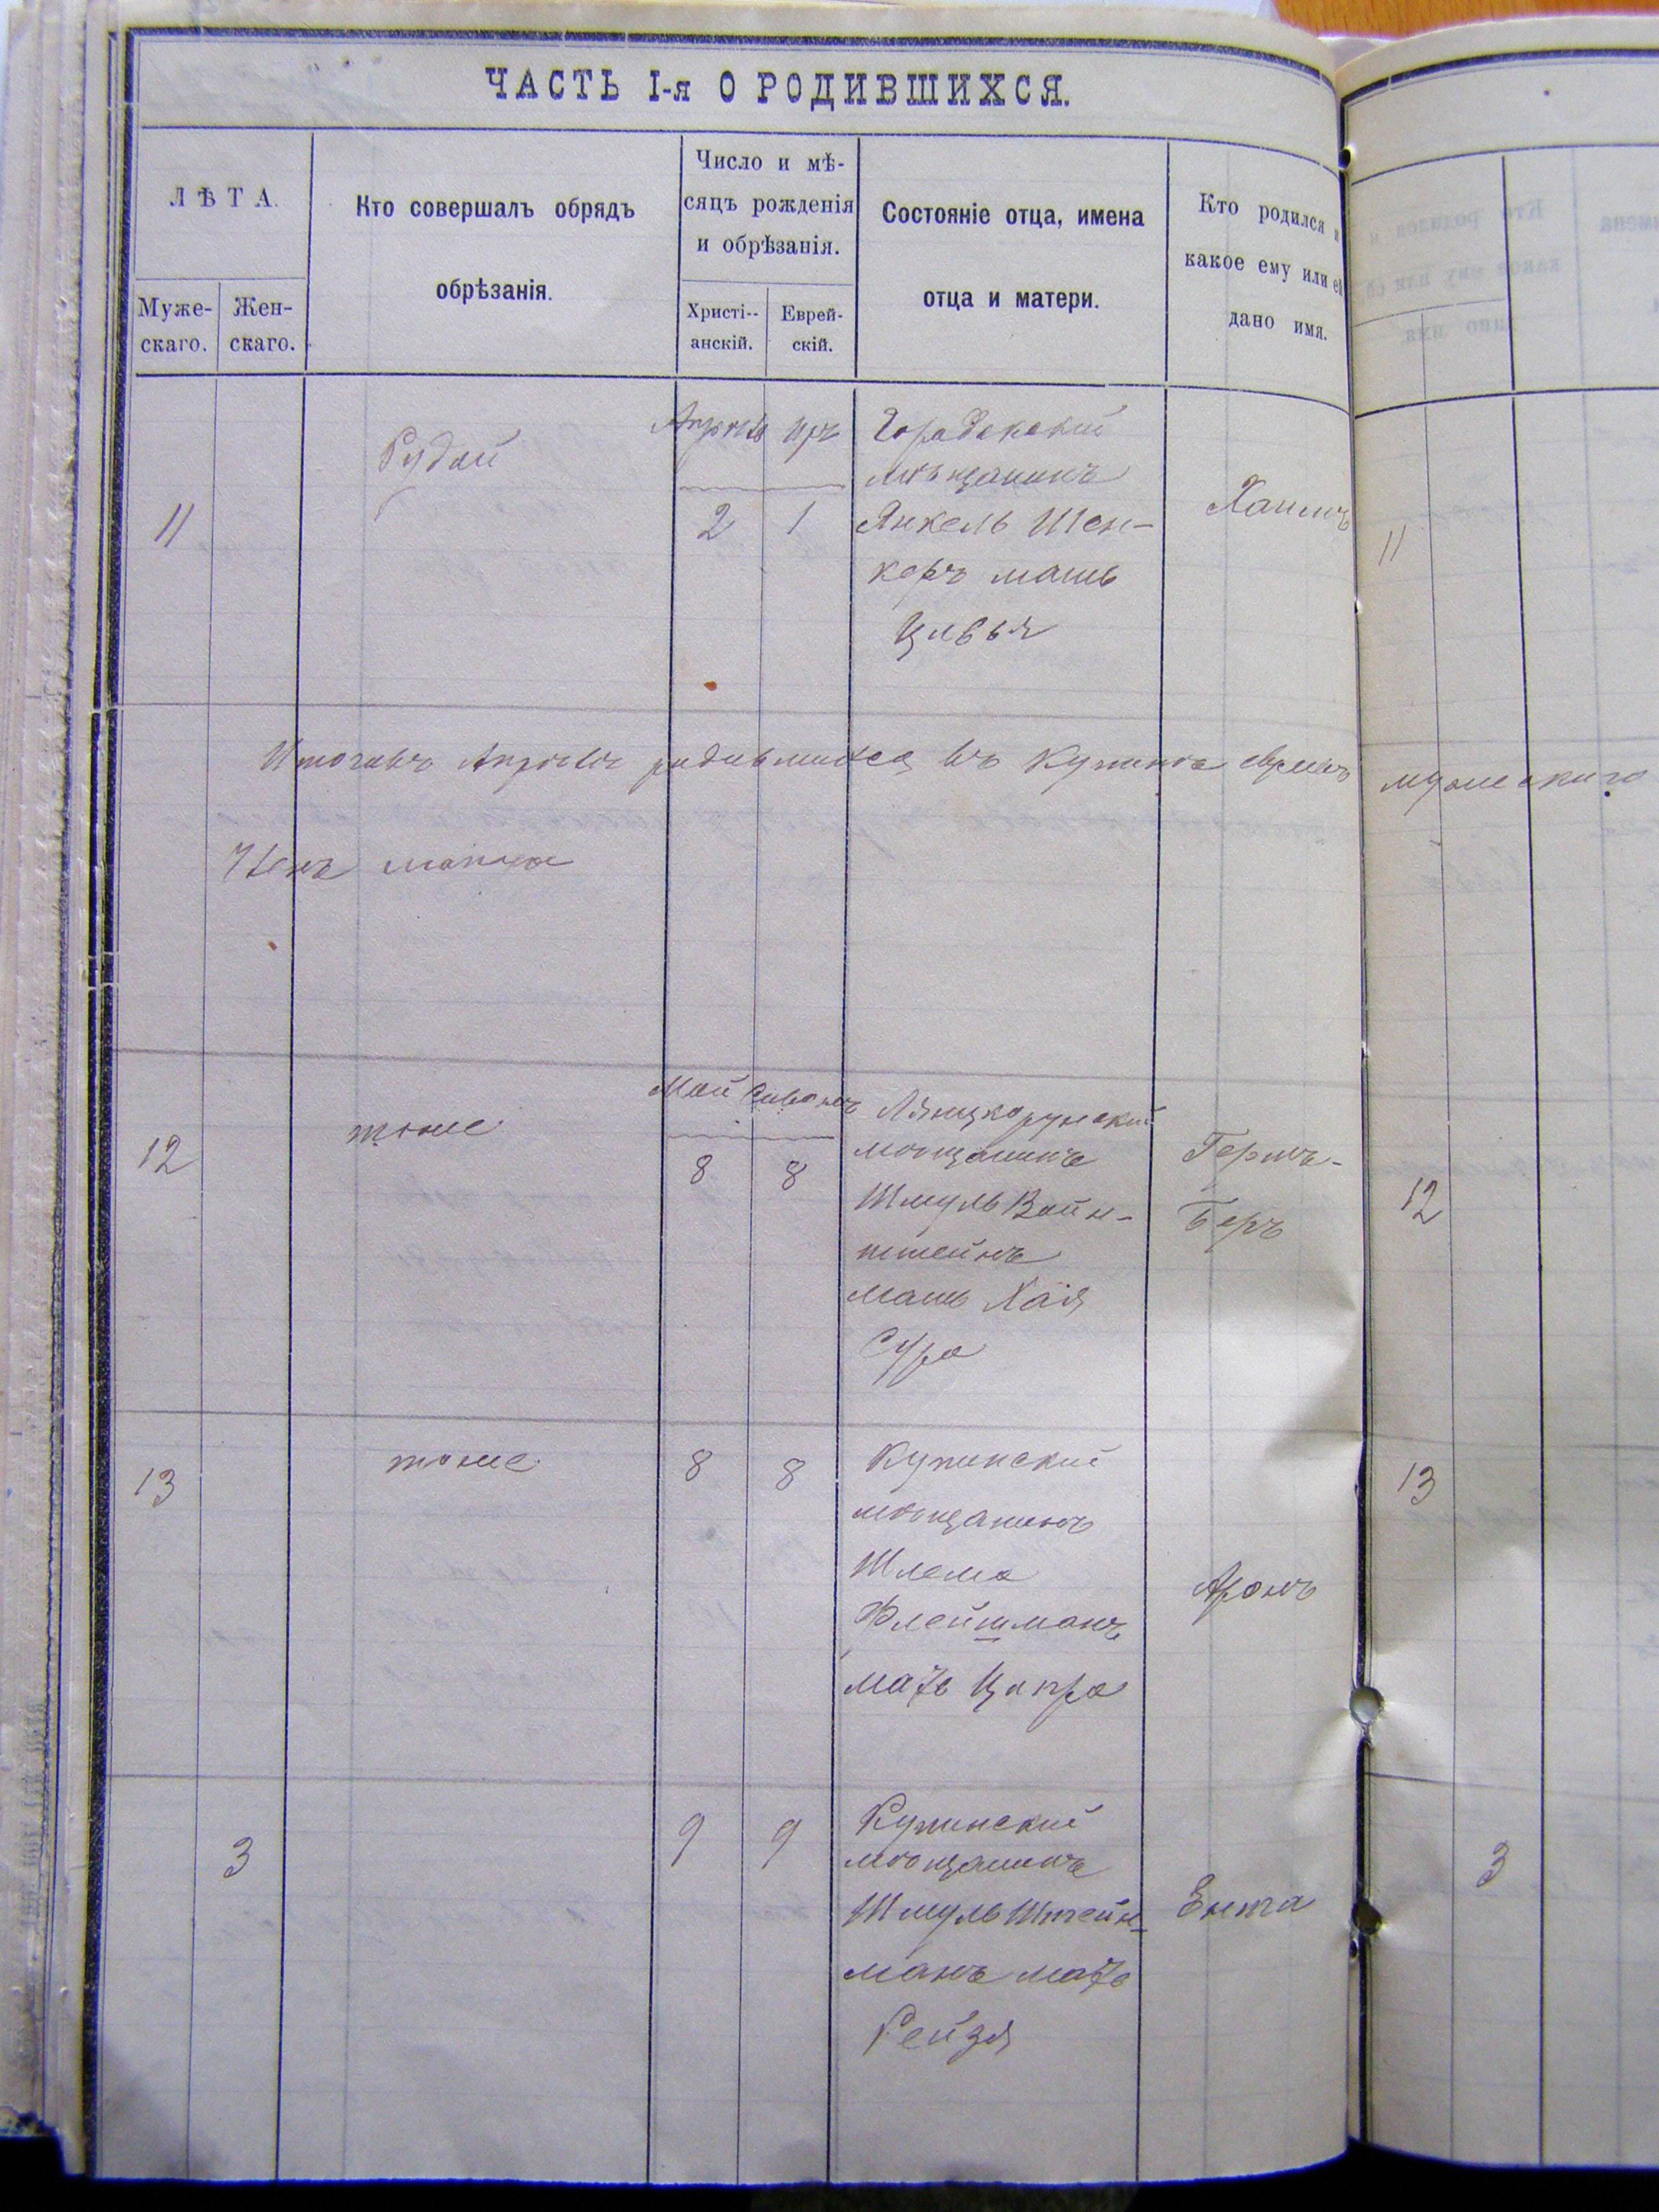 ЧАСТЬ I-я О РОДИВШИХСЯ.
ЛѢТА.
Муже-
скаго.
Жен-
скаго.
Кто совершалъ обрядъ
обрѣзанія.
Число и мѣ-
сяцъ рожденія
и обрѣзанія.
Христі--
анскій.
Еврей-
скій.
Состояніе отца, имена
отца и матери.
Кто родился и
какое ему или ей
дано имя.
11
Рудой
Апрѣль Иръ
2 1
Городокскій
мѣщанинъ
Янкель Шен-
керъ мать
Цивья
Хаимъ
11
Апрѣлѣ родившихся въ Купинѣ евреевъ мужескаго
12
тоже
Май Сивонъ
8 8
Лянцкорунский
мѣщанинъ
Шмуль Вайн-
штейнъ
мать Хая
Сура
Гершъ-
Беръ
12
13
тоже
8 8
Купинский
мѣщанинъ
Шлема
Флейшманъ
мать Ципра
Аронъ
13
3
9 9
Купинский
мѣщанинъ
Шмуль Штейн-
манъ мать
Рейзя
Ента
3